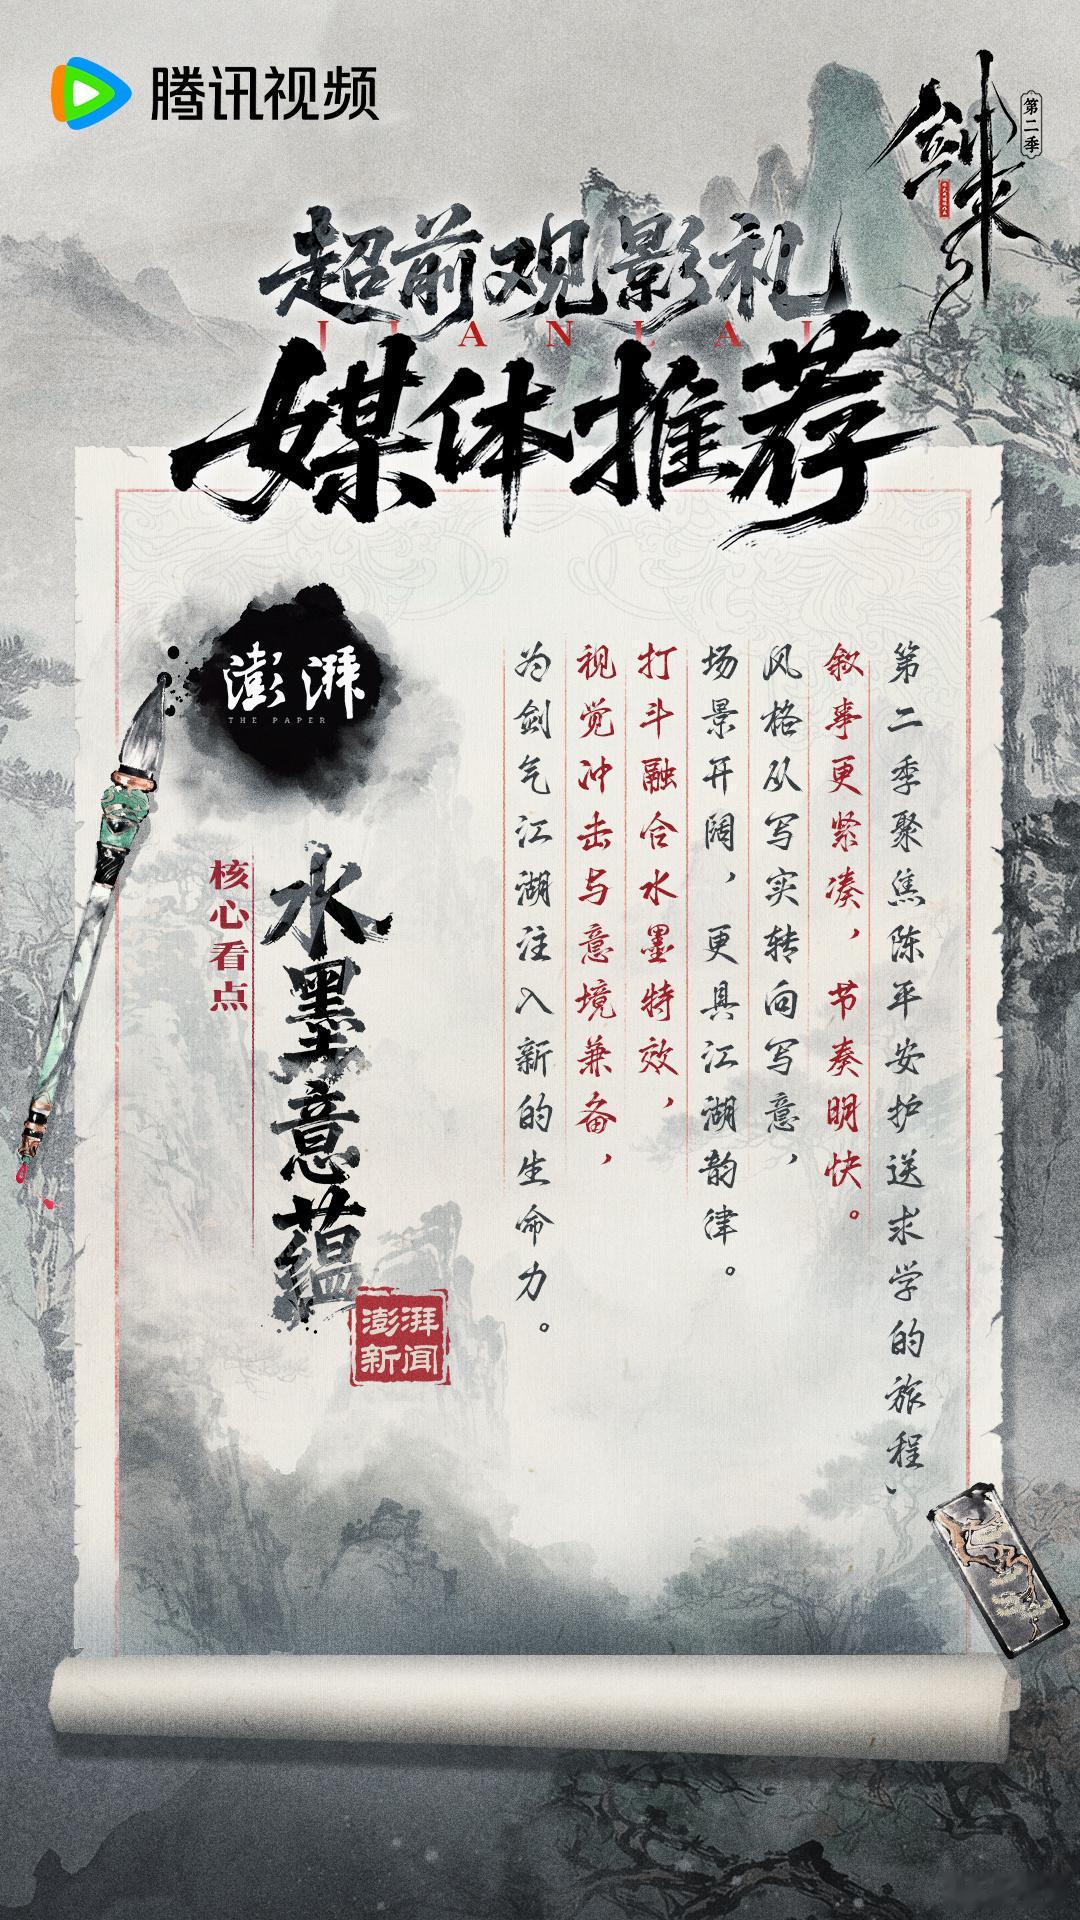 腾讯视频
剑来
第二季
超前观影礼
JIANLAI
媒体推荐
澎湃
THE PAPER
第二季聚焦陈平安护送求学的旅程，
叙事更紧凑，节奏明快。
风格从写实转向写意，
场景开阔，更具江湖韵律。
打斗融合水墨特效，
视觉冲击与意境兼备，
为剑气江湖注入新的生命力。
水墨意蕴
核心看点
澎湃
新闻